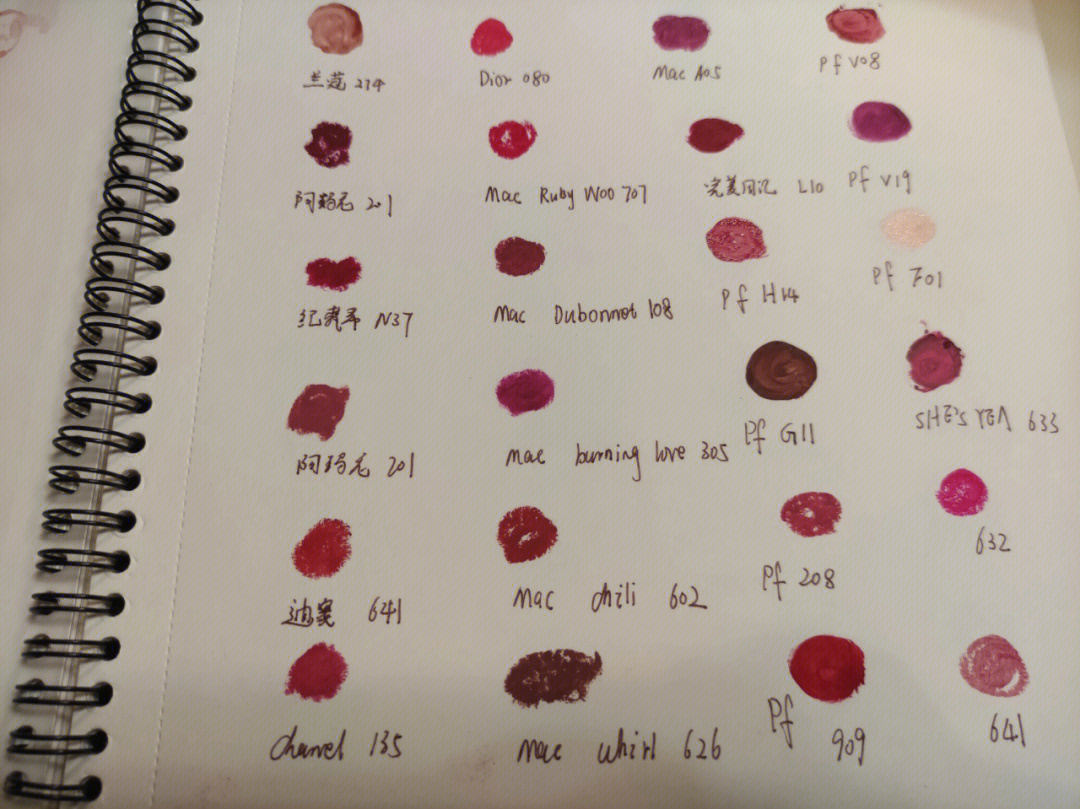 兰蔻 274
Dior 080
Mac A05
Pf V08
阿玛尼 201
Mac Ruby Woo 707
完美日记 L10
Pf V19
纪梵希 N37
Mac Dubonnet 108
Pf H14
Pf F01
阿玛尼 201
Mac burning love 305
Pf G11
SHE'S YEA 633
迪奥 641
Mac chili 602
Pf 208
632
chanel 135
Mac whirl 626
Pf 909
641